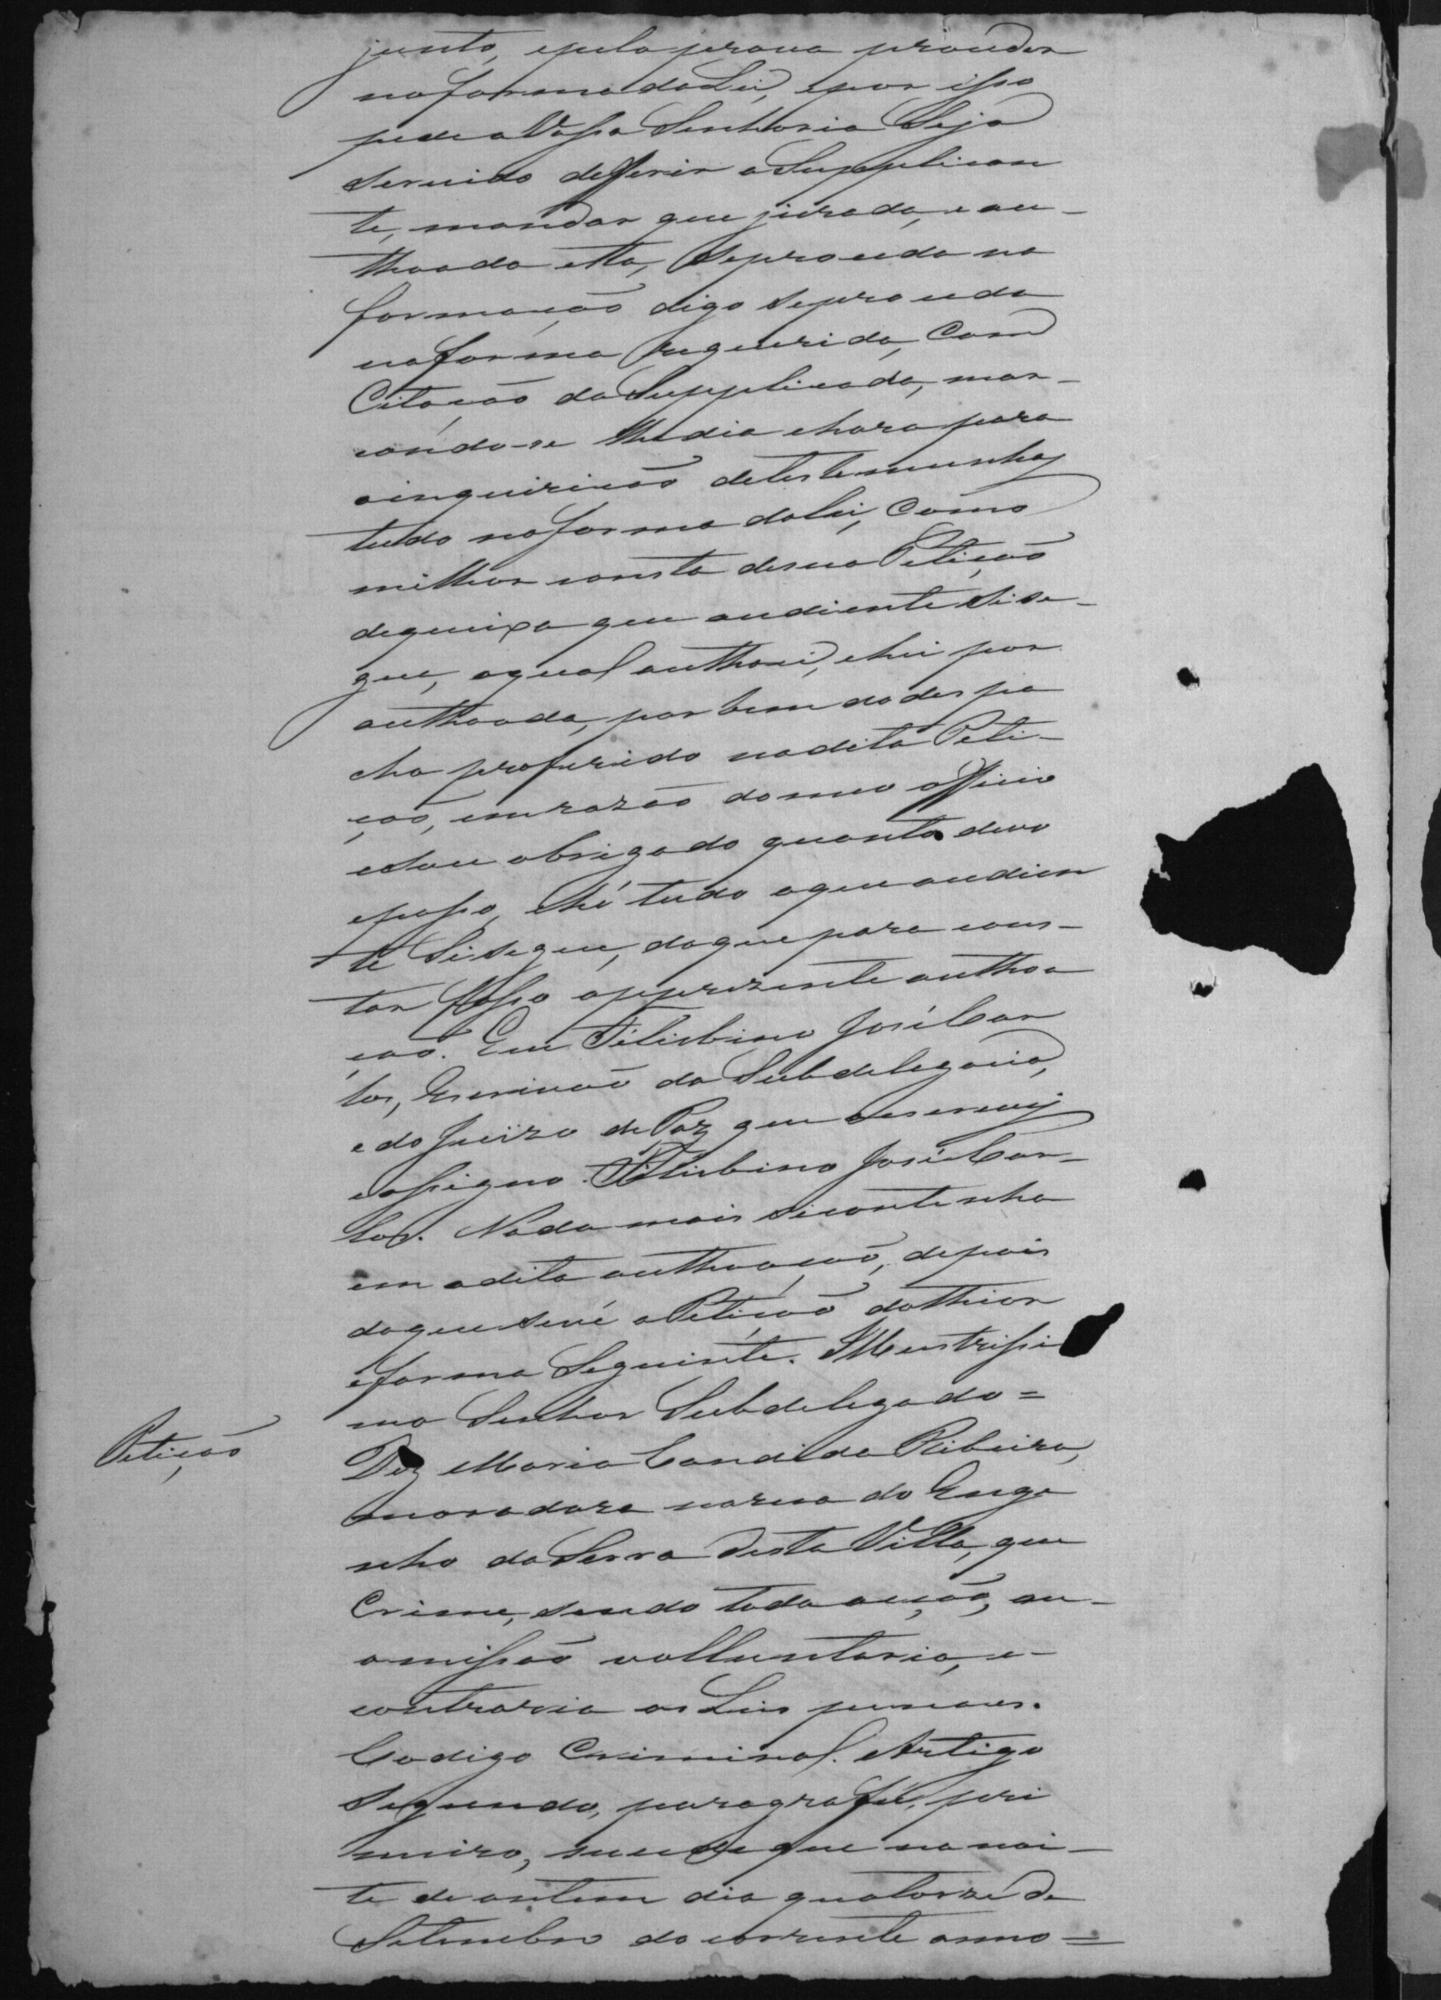 junto, e pela prova proceder
na forma da Lei, e por isso
pede a Vossa Senhoria Seja
servido defferir a Supplican
te, mandar que jurada, e au-
thoada esta, Se proceda na
formação digo se proceda
na forma requerida, Com
Citação da Supplicada, mar-
cando-se lhe dia e hora para
a inquirição de testemunhas
tudo na forma da lei, Como
milhor consta de sua Petição
de queixa que audiente Si se-
gue, a qual authoei, e hei por
authoada, por bem do despa
cho proferido na dita Peti-
ção, em razão do meu officio
estou obrigado quanto devo
e posso, e hé tudo o que audien
te Si segue, do que para cons-
tar fasso a pprezente authoa
ção. Eu Filisbino José Car
los, Escrivão da Subdelegacia,
e do Juizo de Paz que o escrevy
e assigno. Filisbino José Car-
los. Nada mais si continha
em a dita authoação, depois
do que se vê a Petição do theor
e forma Seguinte. Illustrissi
mo Senhor Subdelegado =
Petição
Diz Maria Candida Ribeira,
moradora na rua do Enge
nho da Serra desta Villa, que
Crime, sendo toda acção, ou
omissão volluntaria, e-
contraria as Leis penaes.
Codigo Criminal. Artigo
segundo, paragrafo, pri
meiro, succede que na noi-
te de ontem dia quatorze de
Setembro do corrente anno=